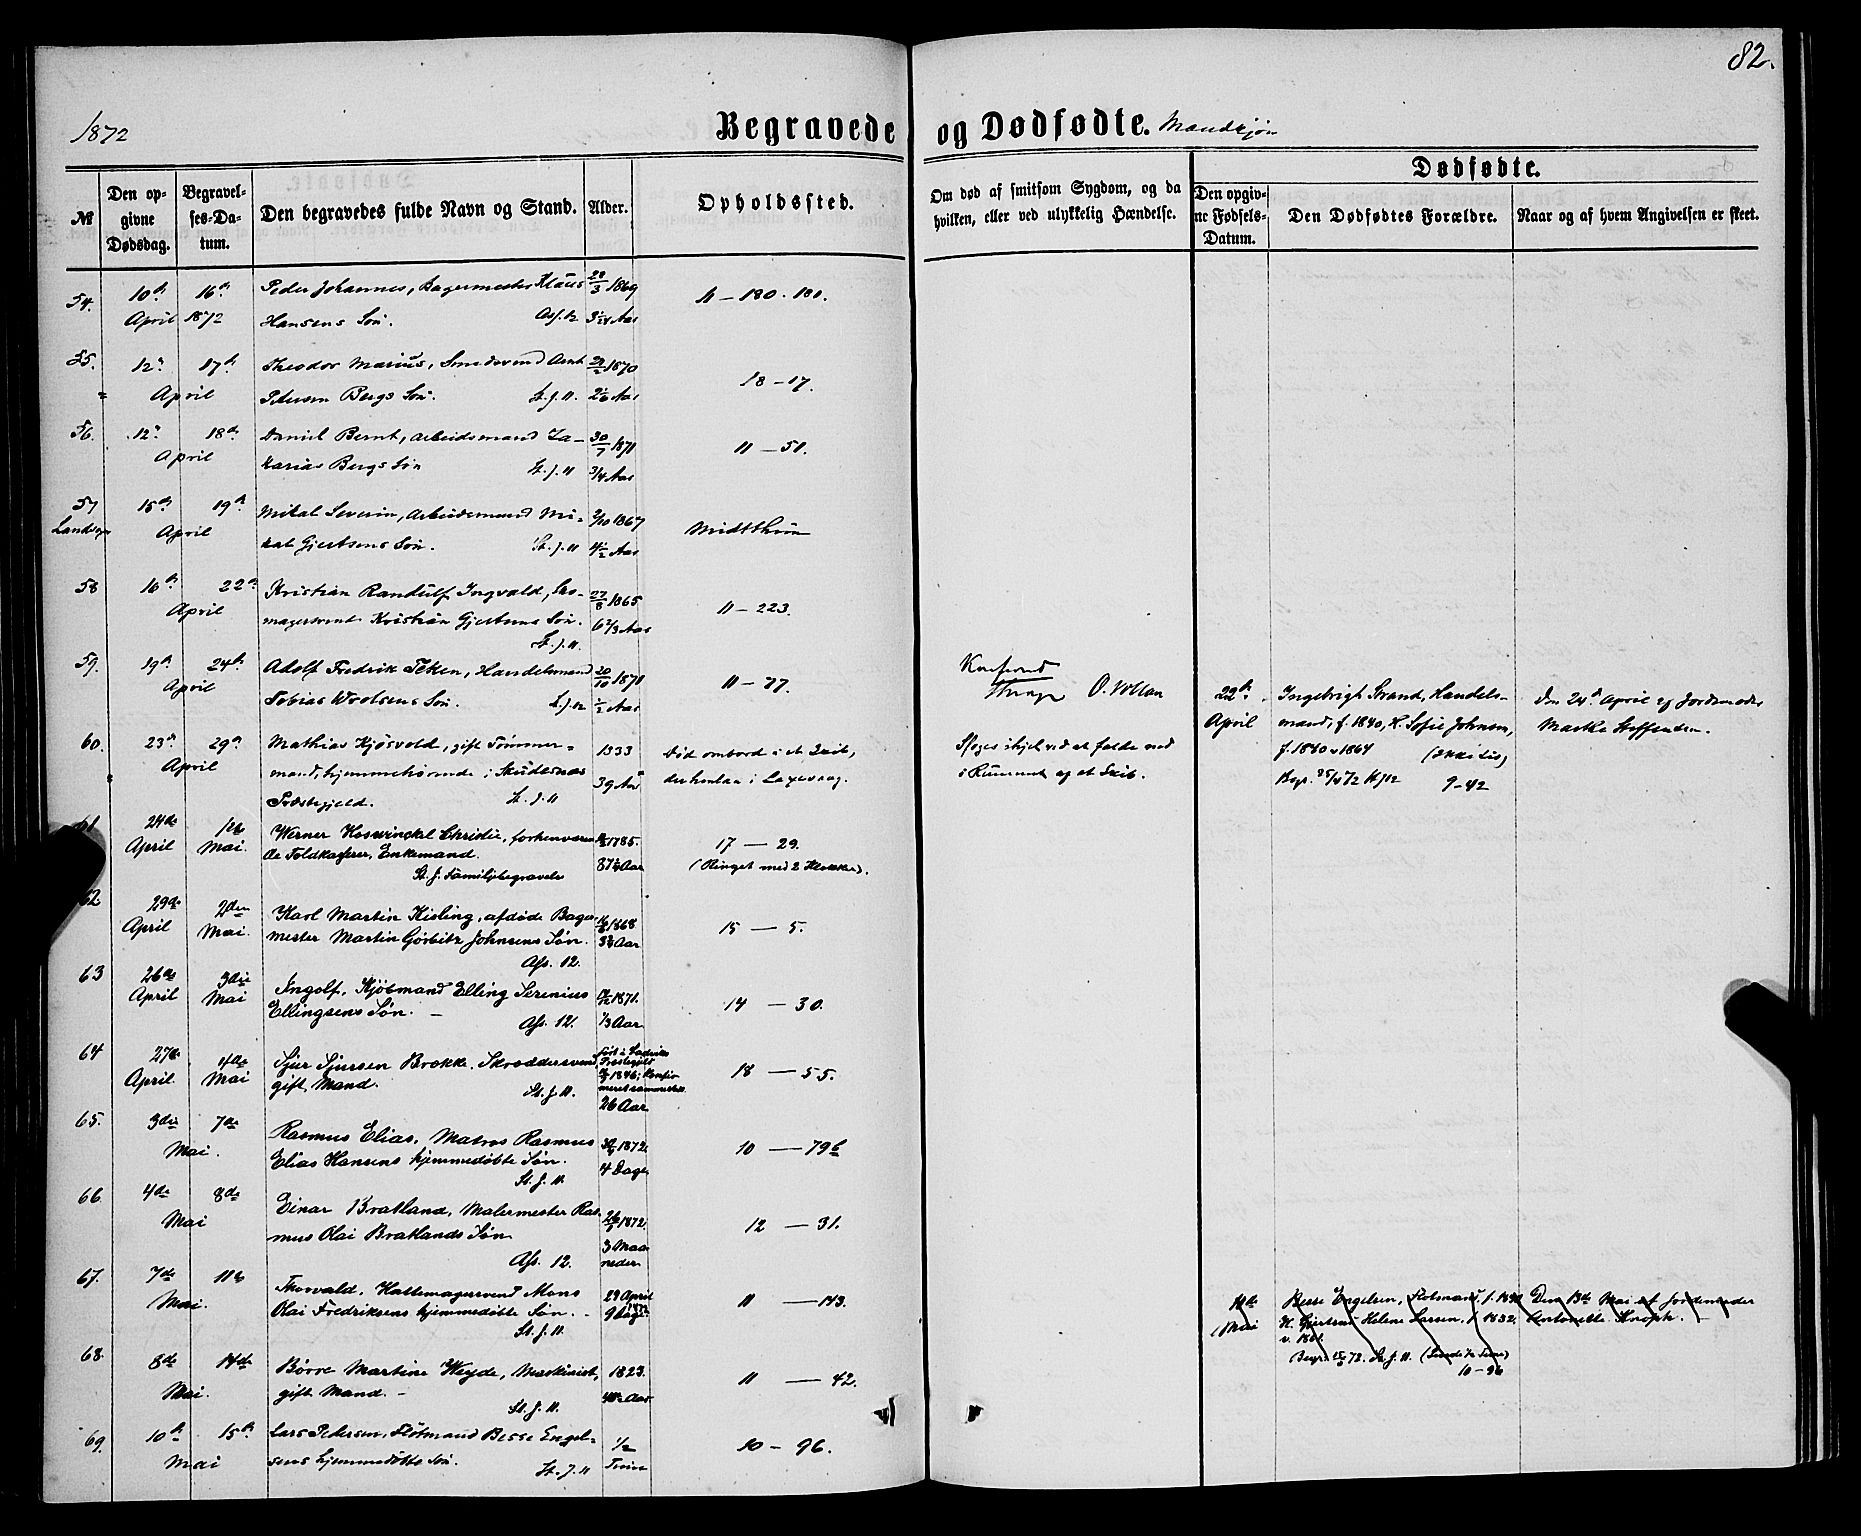 82.
1872
Begravede og Dødfødte. Mandkjøn
№
Den opgivne Dødsdag.
Begravelses-Datum.
Den begravedes fulde Navn og Stand.
Alder.
Opholdssted.
Om død af smitsom Sygdom, og da hvilken, eller ved ulykkelig Hændelse.
Dødfødte.
Den opgivne Fødsels-Datum.
Den Dødfødtes Forældre.
Naar og af hvem Angivelsen er skeet.
54. 10de 16de Peder Johannes, Bagermester Klaus 28/3 1869 11 – 180. 181.
April 1872 Hansens Søn. Asf. 12 3 1/24 Aar
55. 12te 17de Theodor Marius, Smedsvend Arnt 1870 18 – 17.
April Petersen Bergs Søn. St. J. 11. 2 1/6 Aar
56. 12te 18de Daniel Bernt, Arbeidsmand Za- 30/7 1871 11 – 51.
April karias Bergs Søn St. J. 11 3/4 Aar
57 15de 19de Mikal Severin, Arbeidsmand Mi- 2/10 1867 Midtthun
Landsogn April kal Gjertsens Søn. St. J. 11 4 1/2 Aar
58 16de 22de Kristian Randulf Ingvald, Sko- 27/8 1865 11 – 223.
April magersvend Kristian Gjertsens Søn. 6 2/3 Aar
St. J. 11.
59. 19de 24de Adolf Fredrik Teken, Handelsmand 20/10 1871 11 – 77.
April Tobias Wroldsens Søn. St. J. 12 1/2 Aar
Strupe O. Vollan
22de April Ingebrigt Strand, Handels-
mand, f. 1840, H. Sofie Johnsen,
f. 1840 v 1864
Begr. 25/4 72 9 – 42
Den 24de April af Jordemoder
Marthe Steffensen.
60. 23de 29de Mathias Kjøsvold, gift Tømmer- 1833 Død ombord i et Skib,
April mand, hjemmehørende i Skudesnæs 39 Aar der henlaa i Laxevaag.
Præstegjeld. St. J. 11
Sloges ihjel ved at falde ned
i Rummet af et Skib.
61 24de 1ste Werner Hosewinckel Christie, forhenværen- 1785. 17 — 29.
April Mai. de Toldkasserer, Enkemand. 87 Aar (Ringet med 2 Klokker).
St. J. Familiebegravelse
62 29de 2den Karl Martin Kisling, afdøde Bager- 1868 15 — 5.
April Mai. mester Martin Görbitz Johnsens Søn. 3 Aar
Afs. 12.
63 26de 3die Ingolf, Kjøbmand Elling Serenius 1871. 14 — 30.
April Mai Ellingsens Søn. — Afs. 12. 1/3 Aar
64 27de 4de Sjur Sjursen Brække, Skræddersvend, født i 18 — 55.
April Mai gift Mand. St. J. 11. 1846; 26 Aar
65. 3die 7de Rasmus Elias, Matros Rasmus 1872. 10 — 79 b
Mai. Elias Hansens hjemmedøbte Søn. 4 Dage
St. J. 11.
66. 4de 8de Einar Bratland, Malermester Ras- 26/1 1872. 12 — 31.
Mai mus Olai Bratlands Søn. 3 Maa-
Afs. 12. neder
67. 7de 11te Thorvald, Hattemagersvend Mons 29 April 11 — 143.
Mai. Olai Fredriksens hjemmedøbte Søn. 9 Dage
St. J. 11.
11te Mai Besse Engelsen, Flotmand, f. 1830
H. Gjertrud Helene Larsen, f. 1832.
v. 1861.
Begr. 15/5 72. St. J. 11.
10 – 96
Den 13de Mai af Jordemoder
Antonette Knoph. —
68. 8de 14de Børre Martine Heyde, Maskinist, 1823. 11 — 42.
Mai. gift Mand. — Aar
St. J. 11.
69. 10de 15de Lars Pedersen, Flotmand Besse Engel- 1/2 10 – 96.
Mai sens hjemmedøbte Søn. St. J. 11 Time